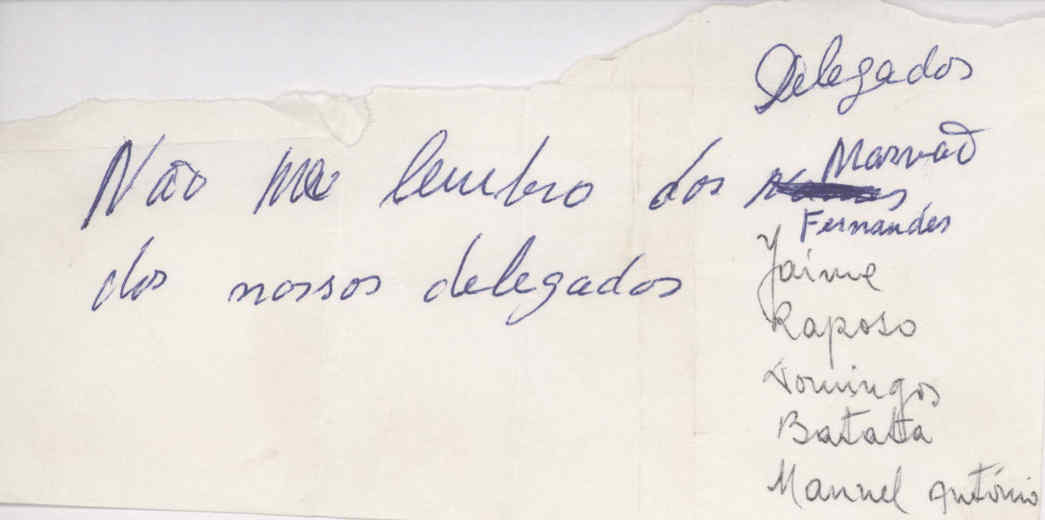 Delegados
Não me lembro dos nomes
dos nossos delegados
Marvão
Fernandes
Jaime
Raposo
Domingos
Batata
Manuel António